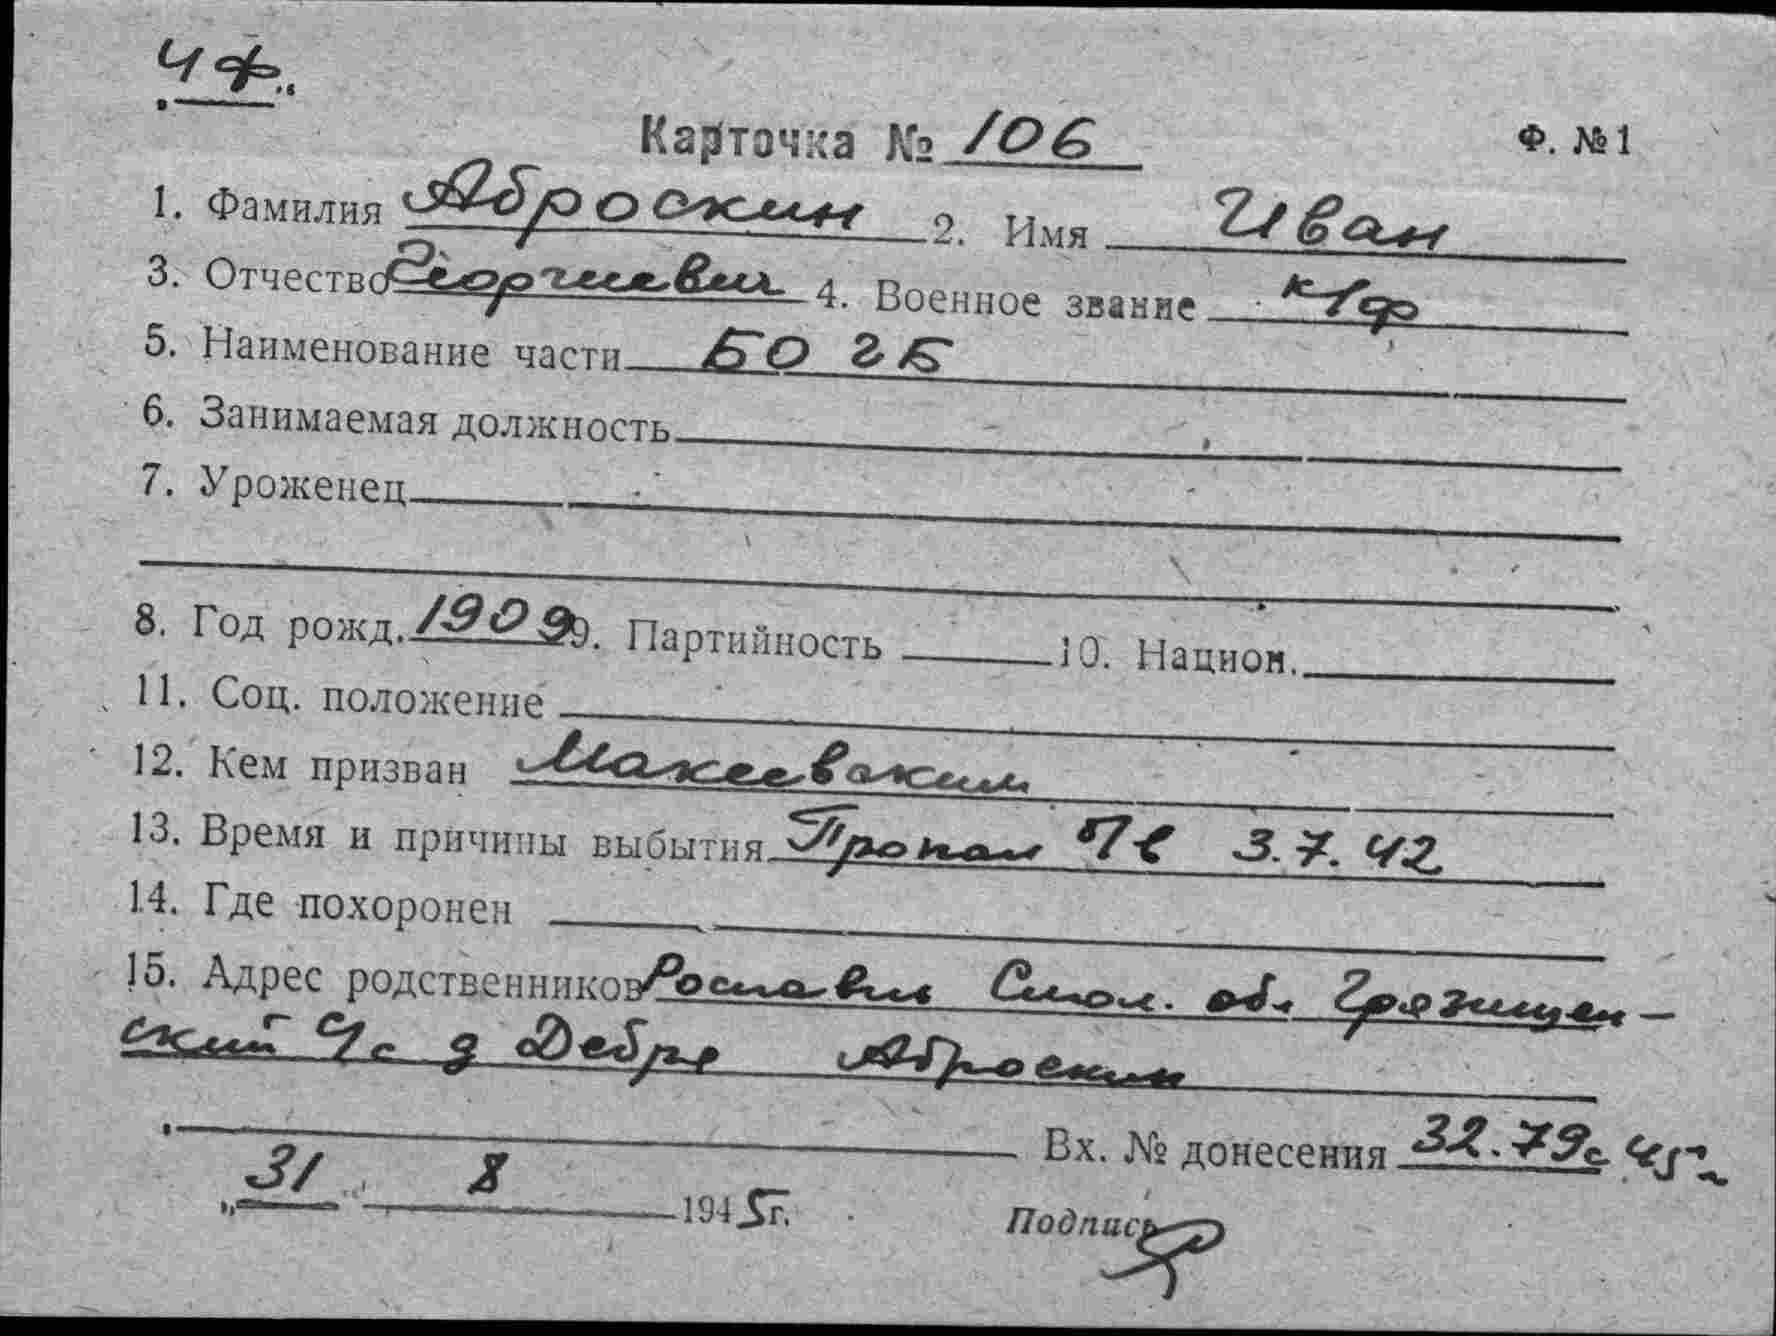 ЧФ.
Карточка № 106 Ф. №1
1. Фамилия Аброскин 2. Имя Иван
3. Отчество Георгиевич 4. Военное звание к/ф
5. Наименование части БО ГБ
6. Занимаемая должность
7. Уроженец
8. Год рожд. 1909 9. Партийность 10. Национ.
11. Соц. положение
12. Кем призван Макеевским
13. Время и причины выбытия Пропал 3.7.42
14. Где похоронен
15. Адрес родственников Рославль Смол. обл Грязищен-
ский с/с д Дебре Аброскин
Вх. № донесения 32.79с 45г
„31 8 1945г.
Подпись